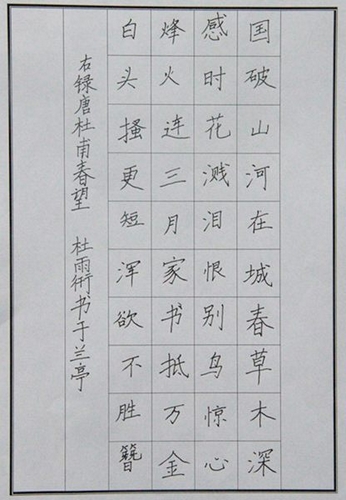 国破山河在城春草木深
感时花溅泪恨别鸟惊心
烽火连三月家书抵万金
白头搔更短浑欲不胜簪
右録唐杜甫春望 杜雨術书于兰亭